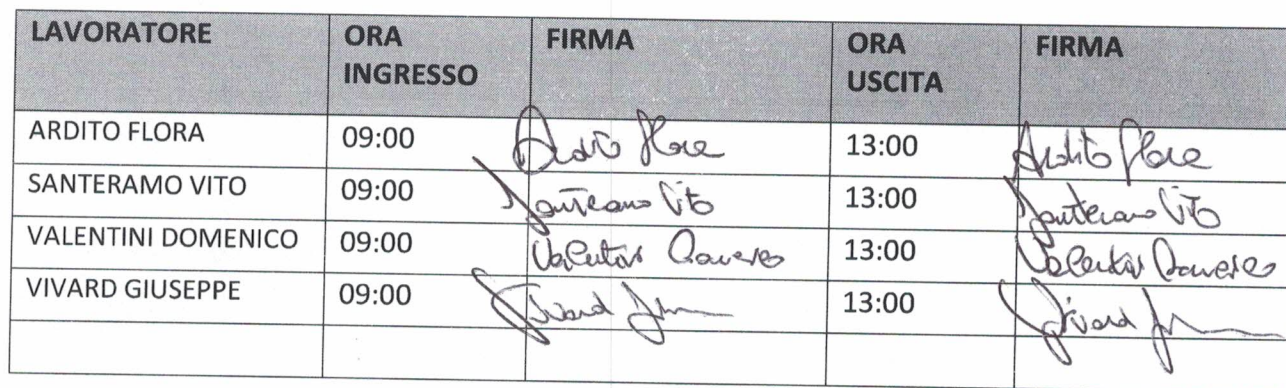 LAVORATORE ORA INGRESSO FIRMA ORA USCITA FIRMA
ARDITO FLORA 09:00 Ardito Flora 13:00 Ardito Flora
SANTERAMO VITO 09:00 Santeramo Vito 13:00 Santeramo Vito
VALENTINI DOMENICO 09:00 Valentini Domenico 13:00 Valentini Domenico
VIVARD GIUSEPPE 09:00 Vivard 13:00 Vivard